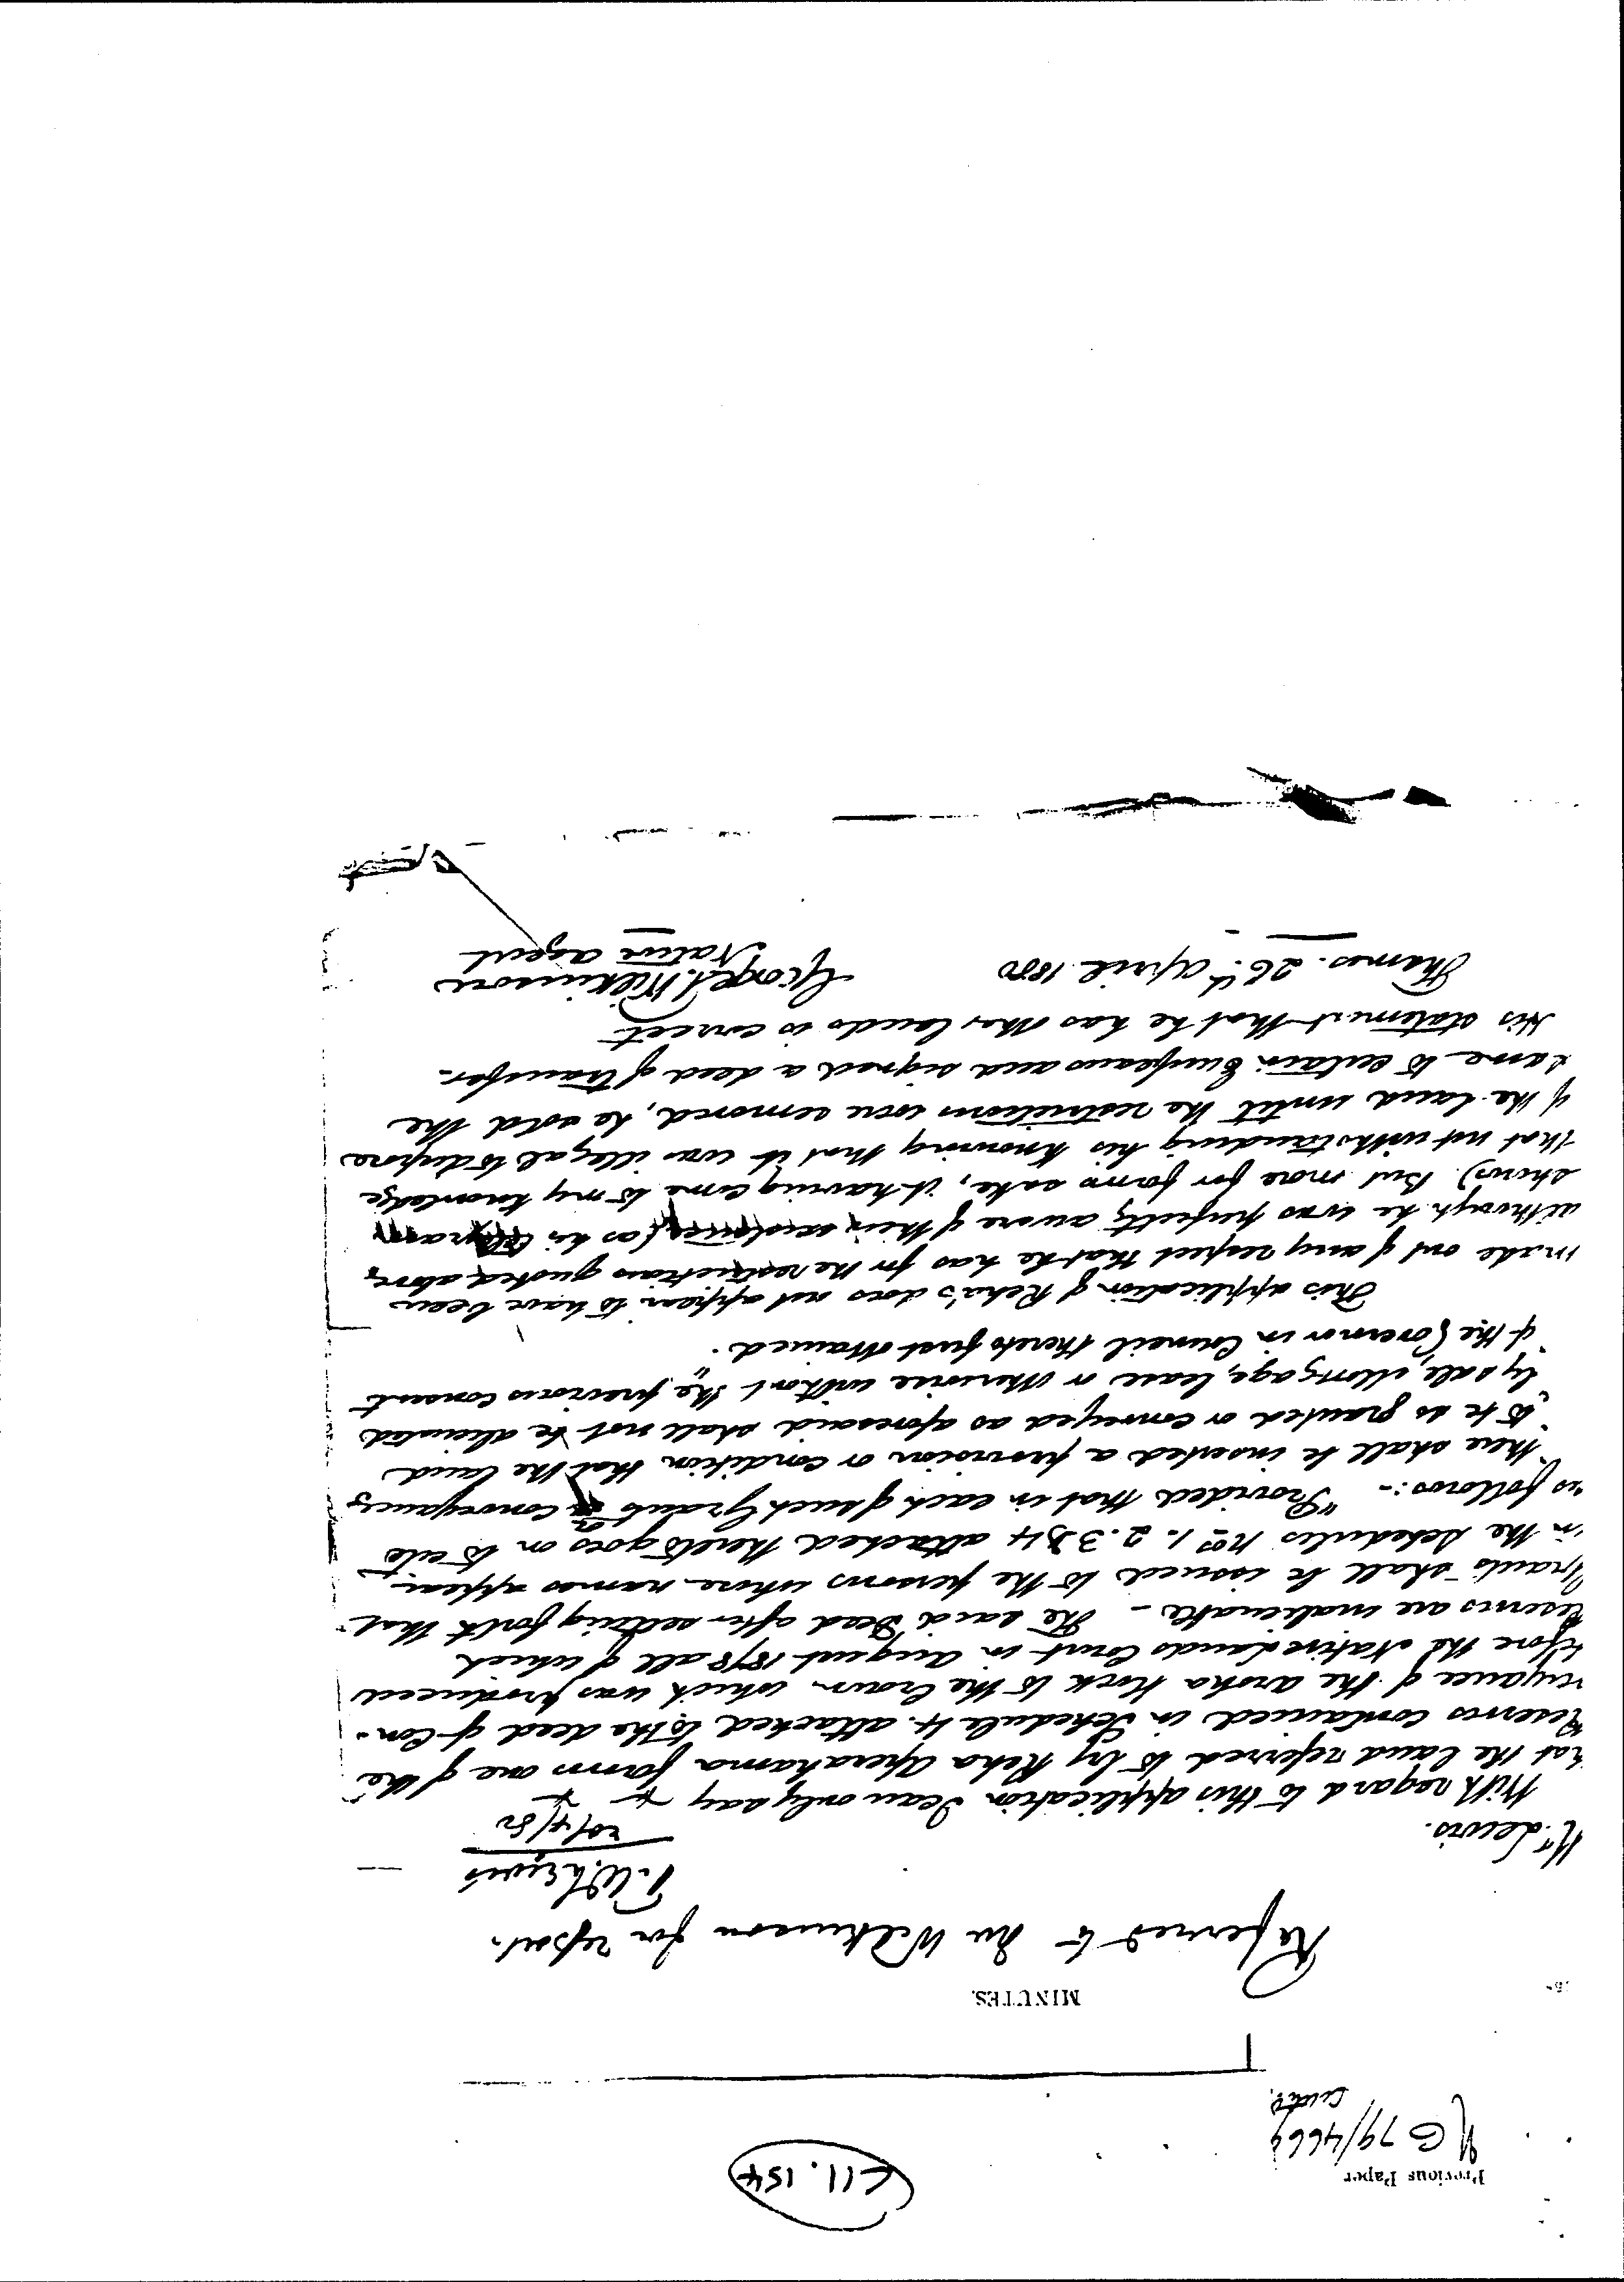 C11.154
Previous Paper
NO 79/4664
MINUTES.
Referred to Mr Wilkinson for report.
T.W. Lewis
20/4/80
Mr Lewis.
With regard to this application I can only say
that the land referred to by Reha Aperahama forms one of the
Reserves contained in Schedule 4. attached to the deed of Con-
veyance of the Aroha Block to the Crown which was produced
before the Native Lands Court in August 1878 all of which
Reserves are inalienable - The said Deed after setting forth that
Grants shall be issued to the persons whose names appear
in the Schedules Nos 1. 2. 3 & 4 attached thereto goes on to cite
as follows:- "Provided that in each of such Grants or Conveyances
"there shall be inserted a provision or condition that the land
"to be so granted or conveyed as aforesaid shall not be alienated
"by sale, Mortgage, lease or otherwise without the previous consent
"of the Governor in Council thereto first obtained."
This application of Reha's does not appear to have been
made out of any respect that he has for the restrictions quoted above,
although he was perfectly aware of their existence (as his
shows) But more for form's sake, it having come to my knowledge
that notwithstanding his knowing that it was illegal to dispose
of the land until the restrictions were removed, he sold the
same to certain Europeans and signed a deed of transfer.
His statement that he has other lands is correct
George T. Wilkinson
Native Agent
Thames. 26th April 1880